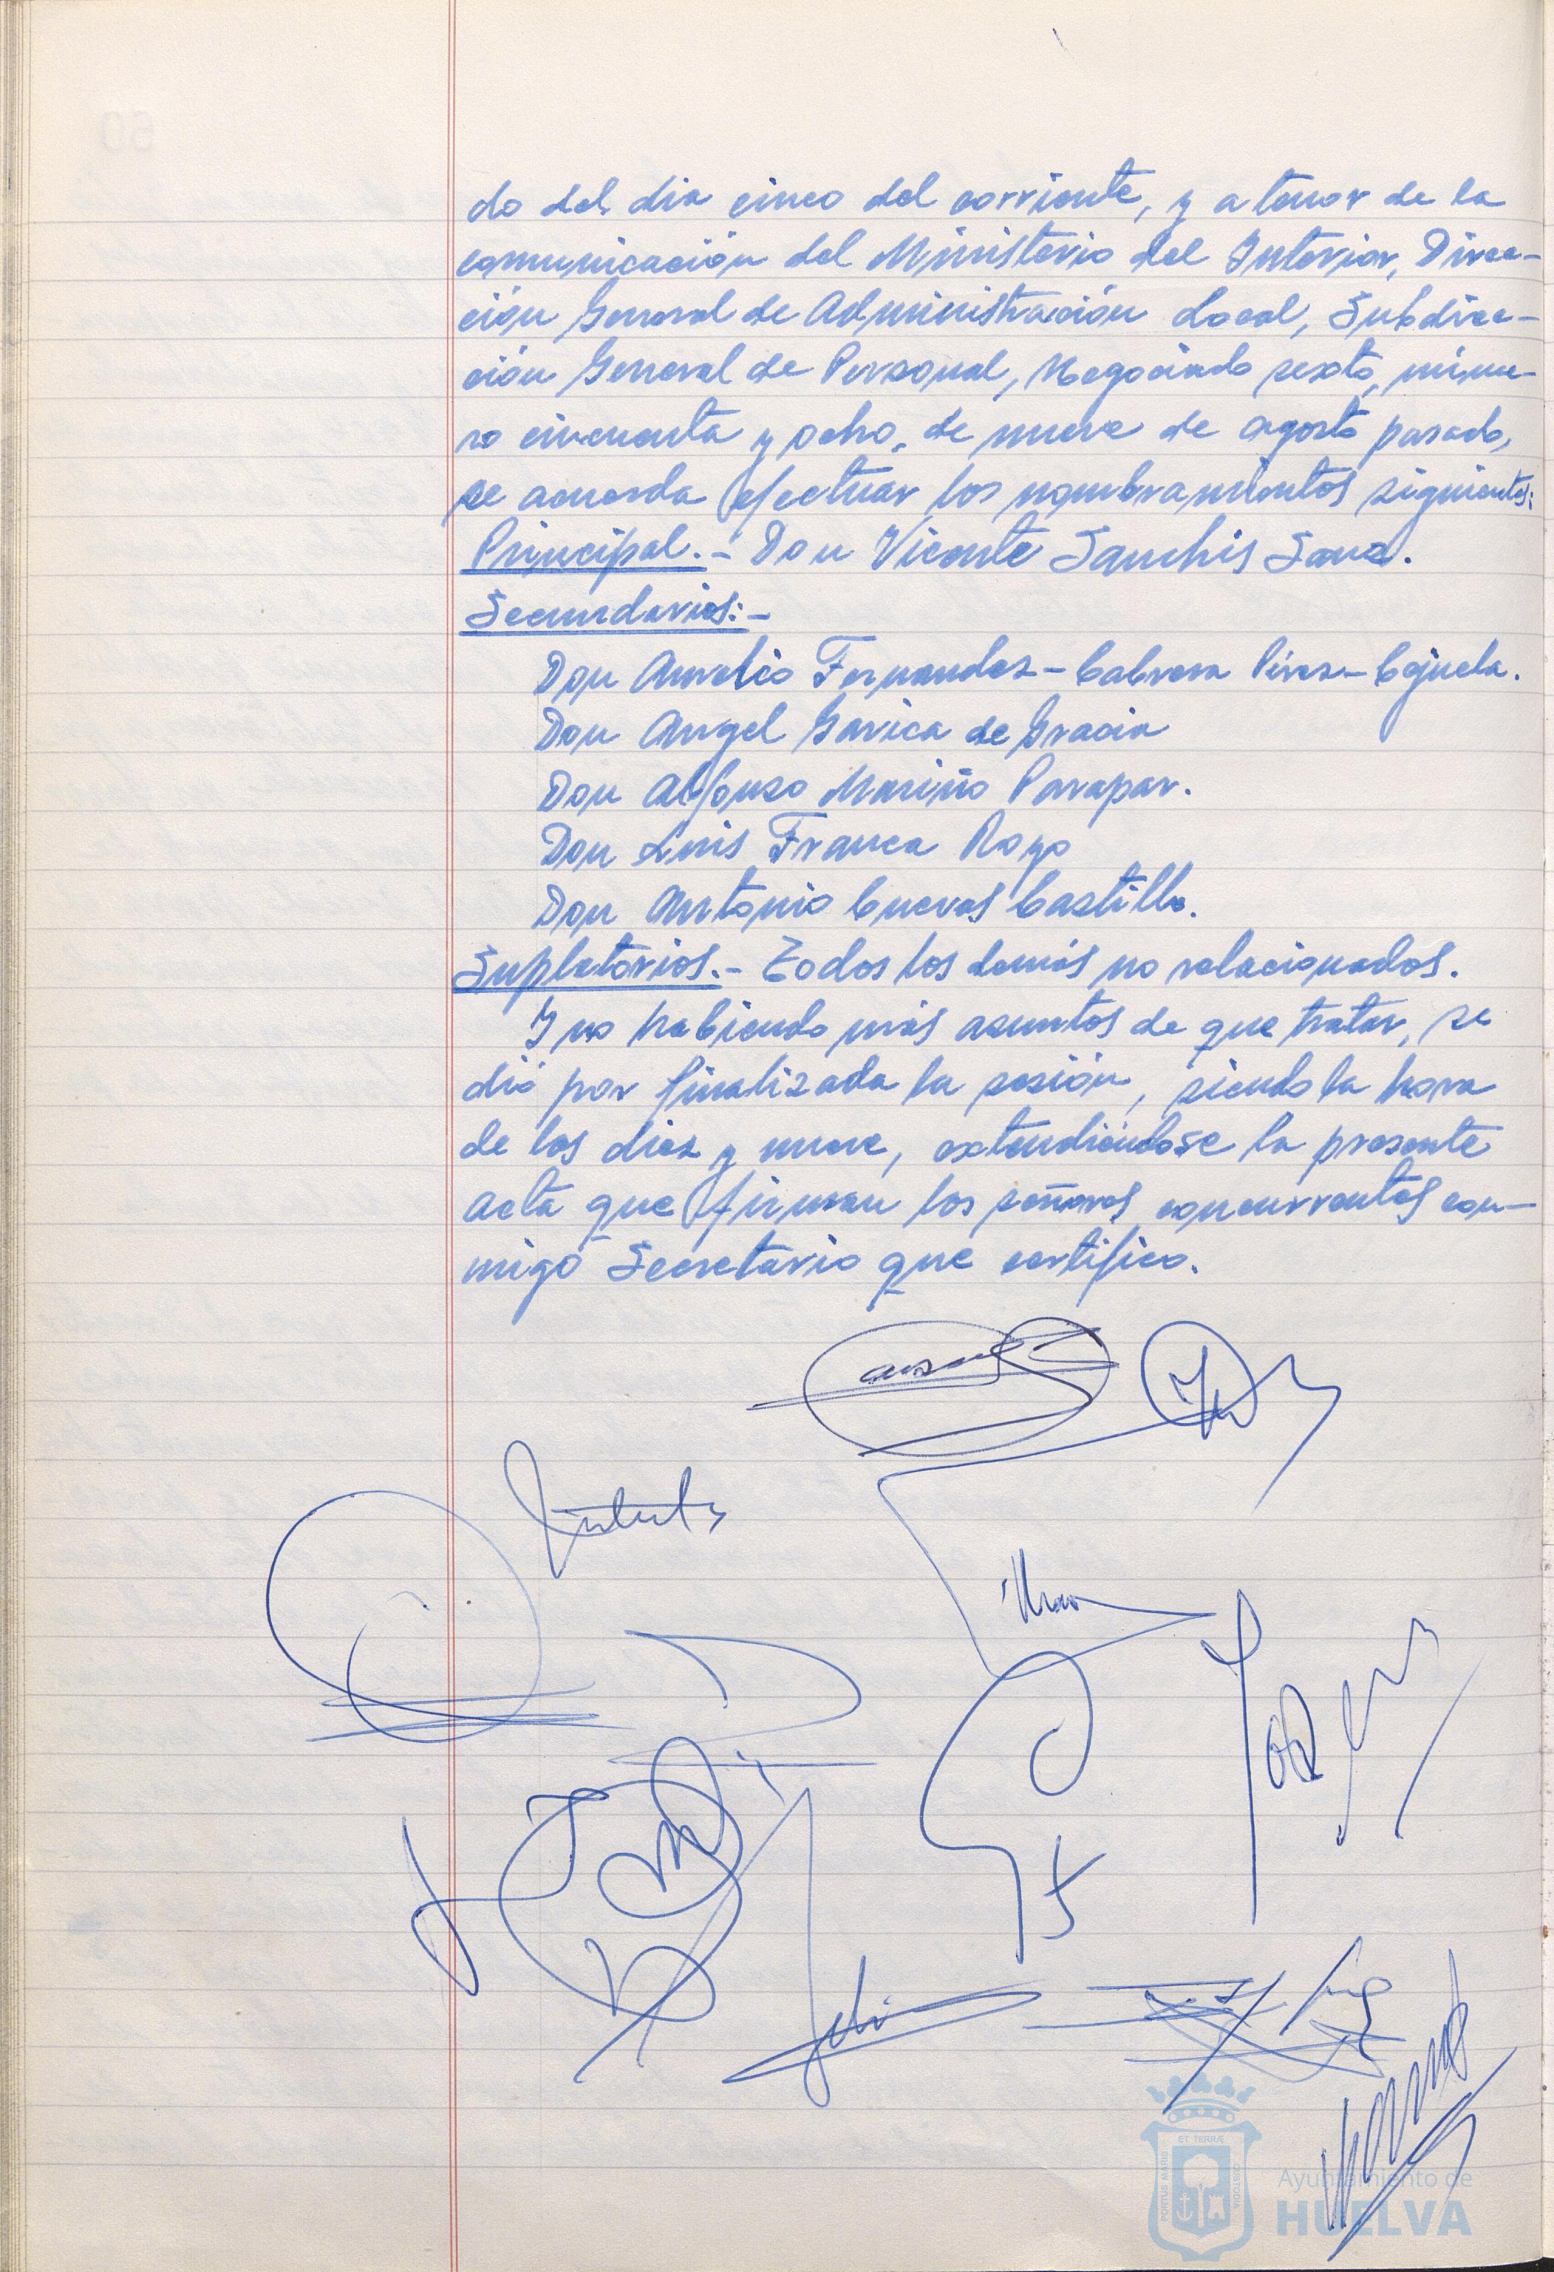 do del día cinco del corriente, y a tenor de la
comunicación del Ministerio del Interior, Direc-
ción General de Administración Local, Subdirec-
ción General de Personal, Negociado sexto, núme-
ro cincuenta y ocho, de nueve de agosto pasado,
se acuerda efectuar los nombramientos siguientes:
Principal.- Don Vicente Sanchis Sanz.
Secundarios:-
Don Aurelio Fernandez-Cabrera Pérez-Cejuela.
Don Angel Garica de Gracia
Don Alfonso Mariño Parapar.
Don Luis Franca Royo
Don Antonio Cuevas Castillo.
Supletorios.- Todos los demás no relacionados.
Y no habiendo más asuntos de que tratar, se
dió por finalizada la sesión, siendo la hora
de las diez y nueve, extendiéndose la presente
acta que firman los señores concurrentes con-
migo Secretario que certifico.
PORTUS MARIS
ET TERRÆ
CUSTODIA
Ayuntamiento de
HUELVA